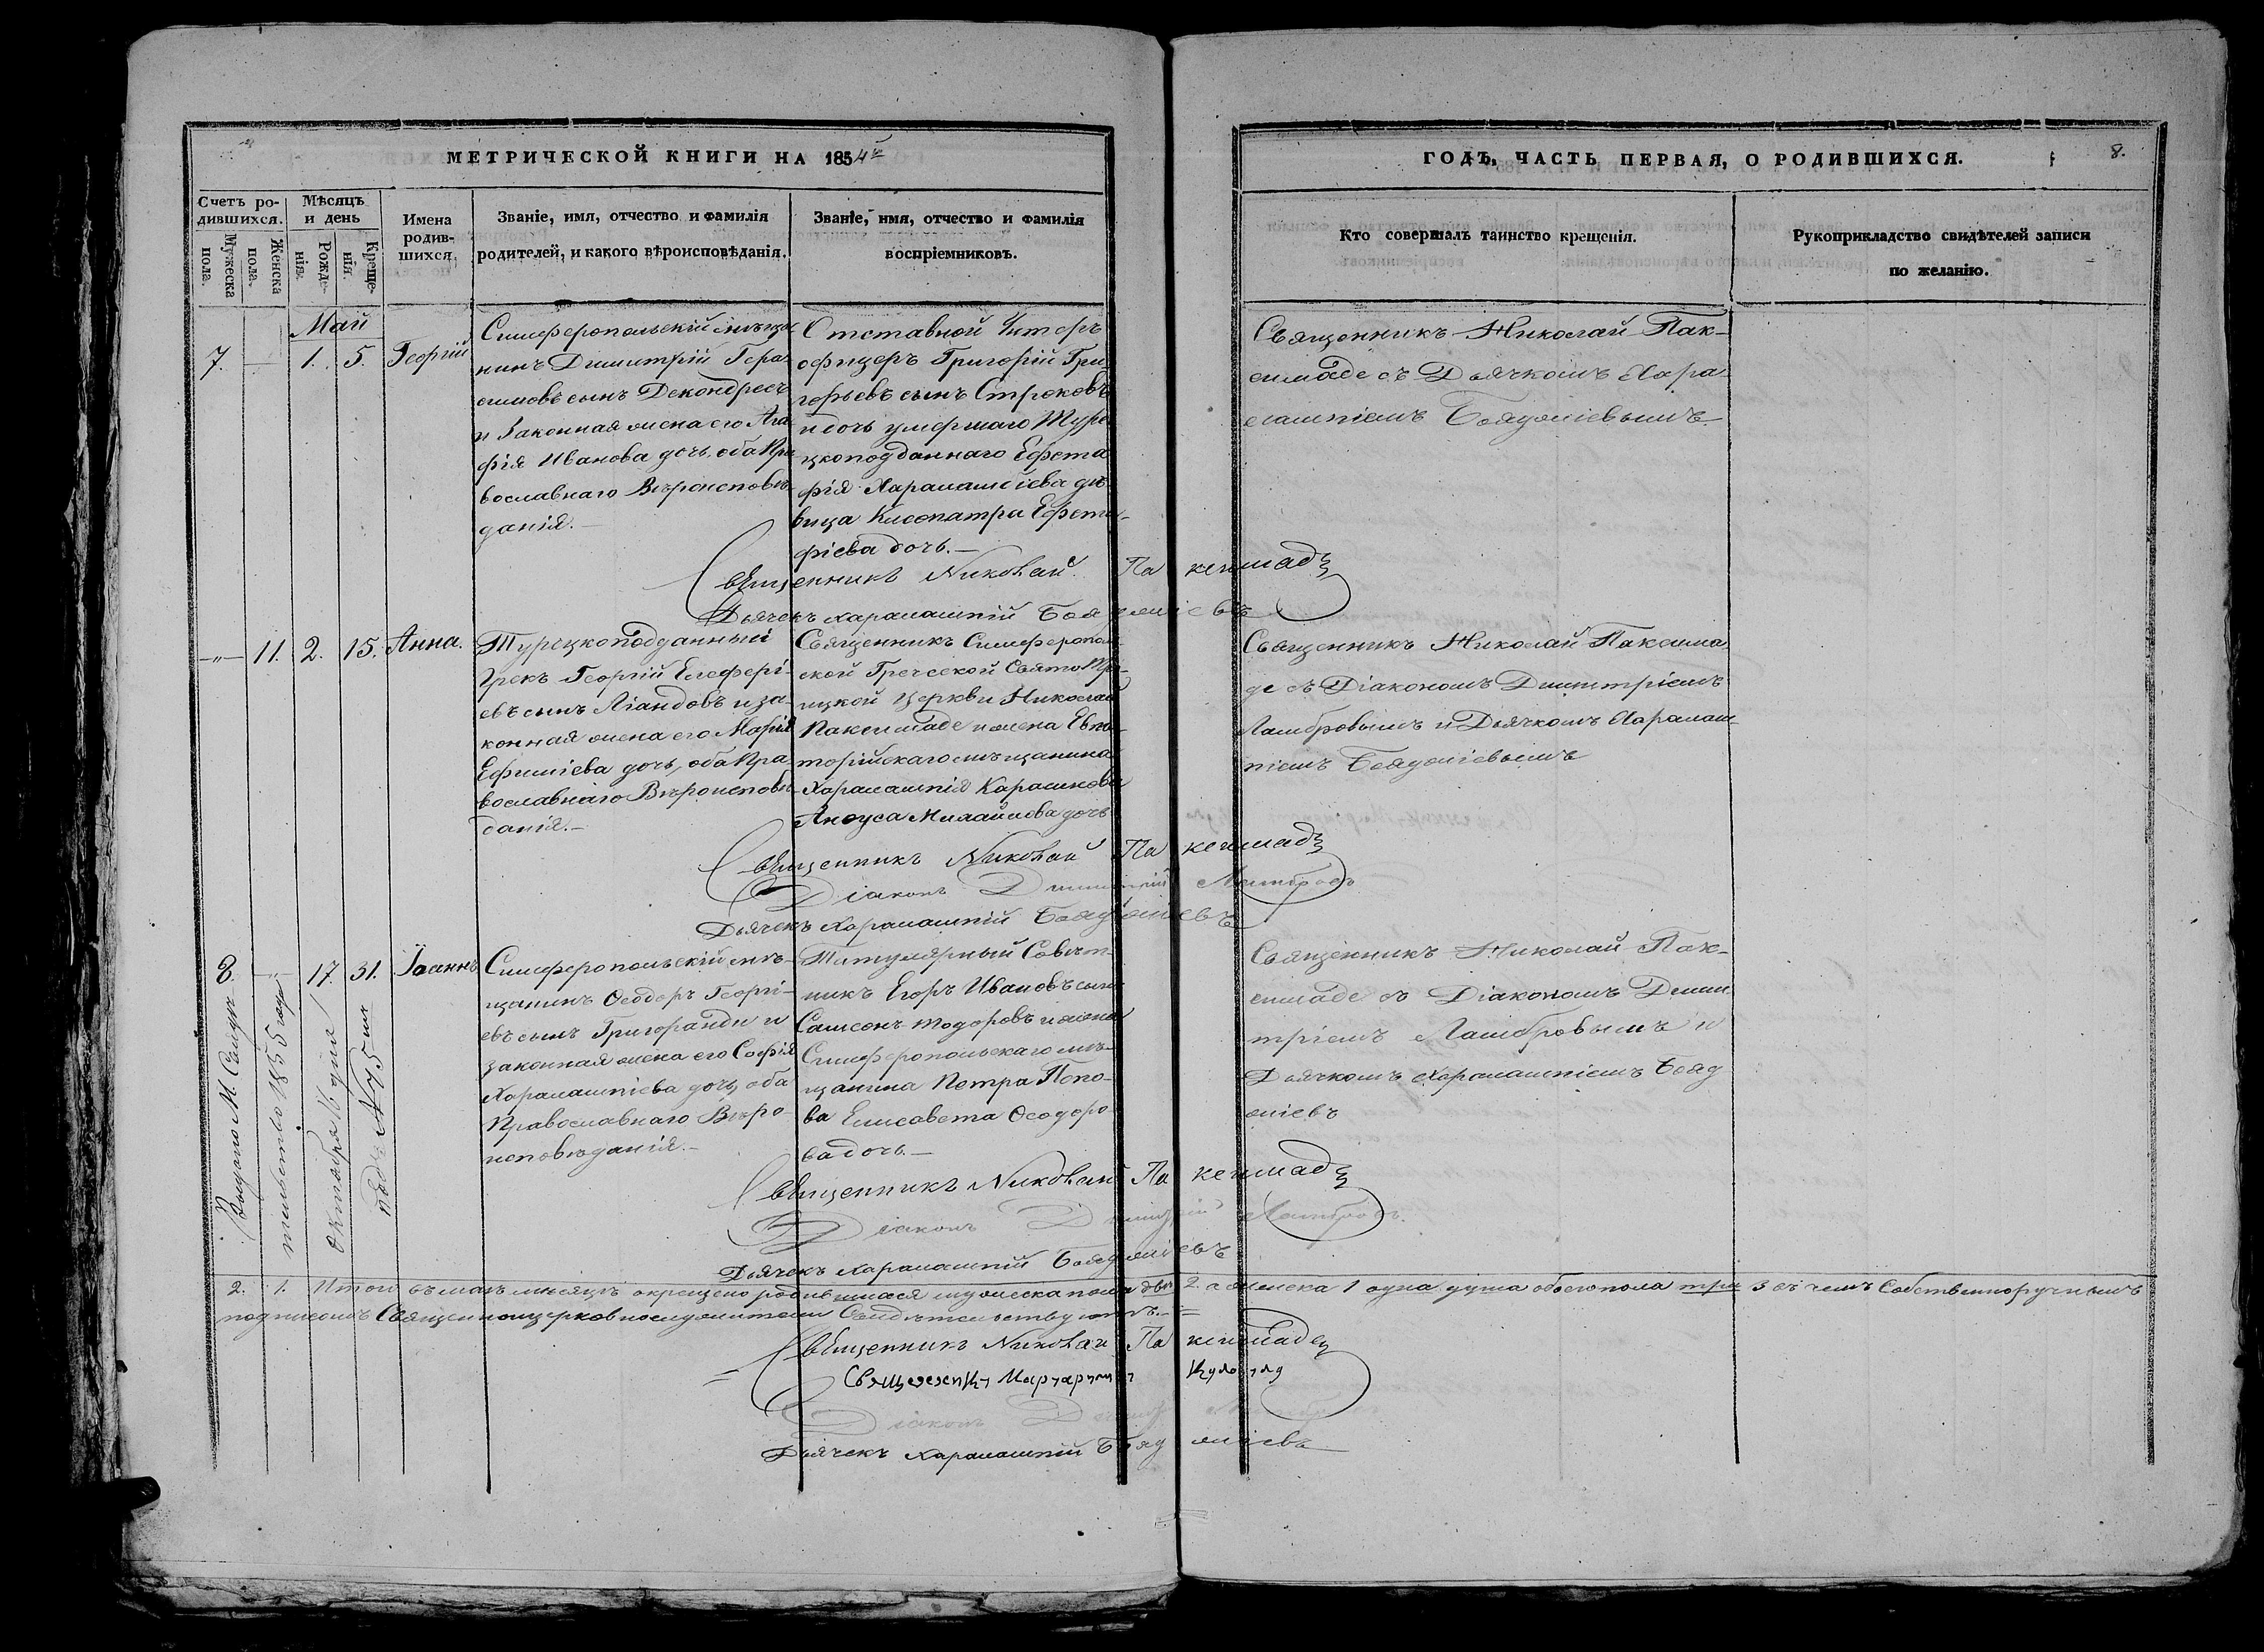 МЕТРИЧЕСКОЙ КНИГИ НА 1854й
ГОДЪ, ЧАСТЬ ПЕРВАЯ, О РОДИВШИХСЯ.
8.
Счетъ ро-
дившихся.
Мужеска пола.
Женска пола.
Мѣсяцъ
и день
Рожде-
нія.
Креще-
нія.
Имена
родив-
шихся.
Званіе, имя, отчество и фамилія
родителей, и какого вѣроисповѣданія.
Званіе, имя, отчество и фамилія
воспріемниковъ.
Кто совершалъ таинство крещенія.
Рукоприкладство свидѣтелей записи
по желанію.
Май
7. — 1. 5. Георгій
Симферопольскій мѣща
нинъ Димитрій Гера-
симовъ сынъ Декондресъ
и Законная жена его Ага
фія Иванова дочь, оба Пра
вославнаго Вѣроисповѣ-
данія.—
Отставной Унтеръ
офицеръ Григорій Гри-
горьевъ сынъ Строковъ
и дочь умершаго Туре
цкоподданнаго Ефета
фія Харалампіева дѣ-
вица Клеопатра Ефета-
фіева дочь.—
Священникъ Николай Пак-
симаде съ Дьячкомъ Хара-
лампіемъ Бояджіевымъ
Священникъ Николай Паксимадi
Дьячекъ Харалампій Бояджіевъ
—"— 11. 2. 15. Анна.
Турецкоподданный
Грекъ Георгій Елефері-
евъ сынъ Ліандовъ и за-
конная жена его Марія
Ефиміева дочь, оба Пра-
вославнаго Вѣроисповѣ-
данія.—
Священникъ Симферополь-
ской Греческой Свято Тро-
ицкой Церкви Николай
Паксимаде и жена Евпа-
торійскаго мѣщанина
Харалампія Карасинова
Анфуса Михайлова дочь
Священникъ Николай Паксима
де съ Діакономъ Димитріемъ
Ламбровымъ и Дьячкомъ Харалам-
піемъ Бояджіевымъ
Священникъ Николай Паксимадi
Діаконъ Димитрій Ламбровъ
Дьячекъ Харалампій Бояджіевъ
8. —"— 17. 31. Іоаннъ
Симферопольскій мѣ-
щанинъ Ѳеодоръ Георгі-
евъ сынъ Григоранди и
законная жена его Софія
Харалампіева дочь, оба
Православнаго Вѣро-
исповѣданія.—
Титулярный Совѣт-
никъ Егоръ Ивановъ сынъ
Самсонъ-Тодоровъ и жена
Симферопольскаго мѣ-
щанина Петра Попо-
ва Елисавета Ѳеодоро-
ва дочь.—
Священникъ Николай Пак-
симаде съ Діакономъ Дими
тріемъ Ламбровымъ и
Дьячкомъ Харалампіемъ Бояд
жіевъ
Выдано М. Свидѣ-
тельство 1855 года
Октября 16 дня
подъ № 75мъ
Священникъ Николай Паксимадi
Діаконъ Димитрій Ламбровъ.
Дьячекъ Харалампій Бояджіевъ
2. 1. Итого въ маѣ мѣсяцѣ окрещено родившихся мужеска пола два 2. а женска 1 одна душа обоего пола три 3 въ чемъ Собственноручнымъ
подписомъ Священноцерковнослужители Свидѣтельствуютъ.—
Священникъ Николай Паксимаде
Священикъ Маргарит
Діаконъ
Дьячекъ Харалампій Бояджіевъ